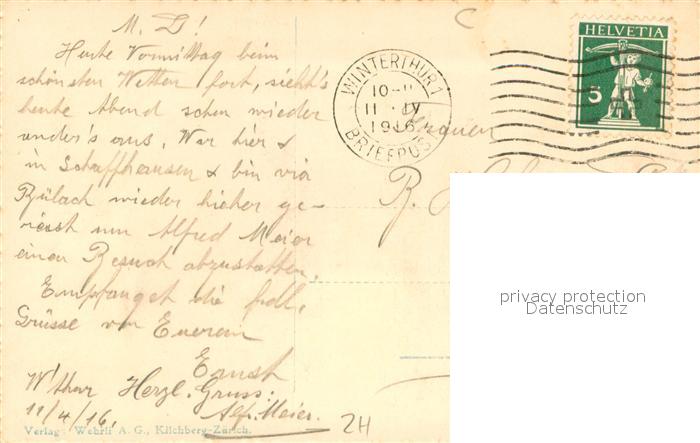 M. L!
Heute Vormittag beim
schönsten Wetter fort, sieht's
heute Abend schon wieder
ander's aus. War hier &
in Schaffhausen & bin via
Bülach wieder hieher ge-
reist um Alfred Meier
einen Besuch abzustatten.
Empfanget die frdl.
Grüsse von Euerem
Ernst
W'thur Herzl. Gruss:
11/4/16. Alf. Meier.
Verlag: Wehrli A. G., Kilchberg-Zürich.
2H
C
WINTERTHUR 1
10-11
11. IV
1916
BRIEFPOST
HELVETIA
5
Frauen
R.
privacy protection
Datenschutz